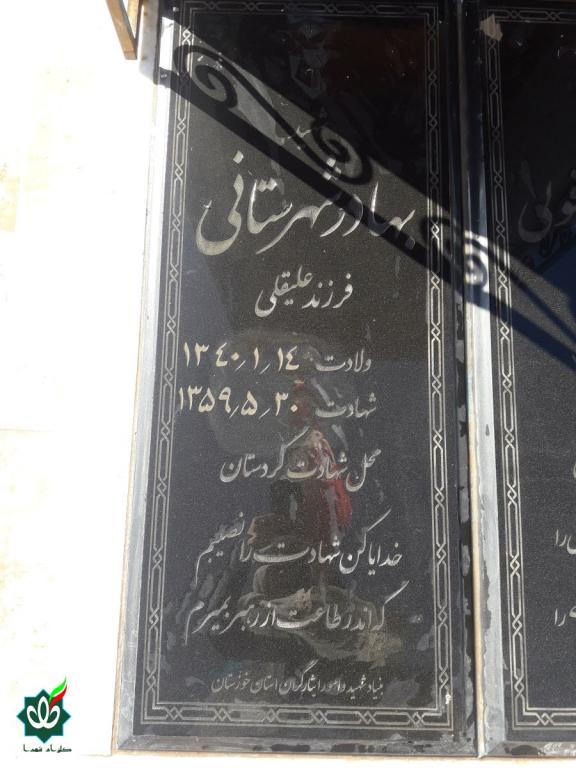 شهید
بهادر شهرستانی
فرزند علیقلی
ولادت ۱۴ ٫ ۱ ٫ ۱۳۴۰
شهادت ۳۰ ٫ ۵ ٫ ۱۳۵۹
محل شهادت کردستان
خدایا کن شهادت را نصیبم
که اندر طاعت از رهبر بمیرم
بنیاد شهید و امور ایثارگران استان خوزستان
را
را